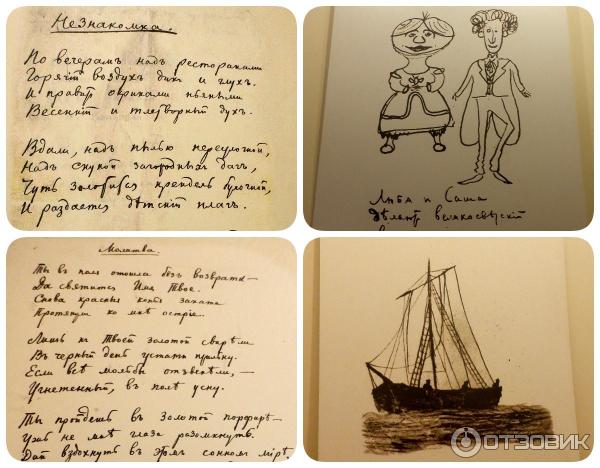 Незнакомка.
По вечерамъ надъ ресторанами
Горячій воздухъ дикъ и глухъ.
И правитъ окриками пьяными
Весенній и тлетворный духъ.
Вдали, надъ пылью переулочной,
Надъ скукой загородныхъ дачъ,
Чуть золотится крендель булочной,
И раздается дѣтскій плачъ.
Люба и Саша
дѣлаютъ великосвѣтскій
Молитва.
Ты въ поля отошла безъ возврата —
Да святится Имя Твое.
Снова красныя копья заката
Протянули ко мнѣ остріе.
Лишь къ Твоей золотой свирѣли
Въ черный день устами прильну.
Если всѣ мольбы отзвенѣли, —
Угнетенный, въ полѣ усну.
Ты пройдешь въ золотой порфирѣ —
Ужъ не мнѣ глаза разомкнуть.
Дай вздохнуть въ этомъ сонномъ мірѣ,
ОТЗОВИК